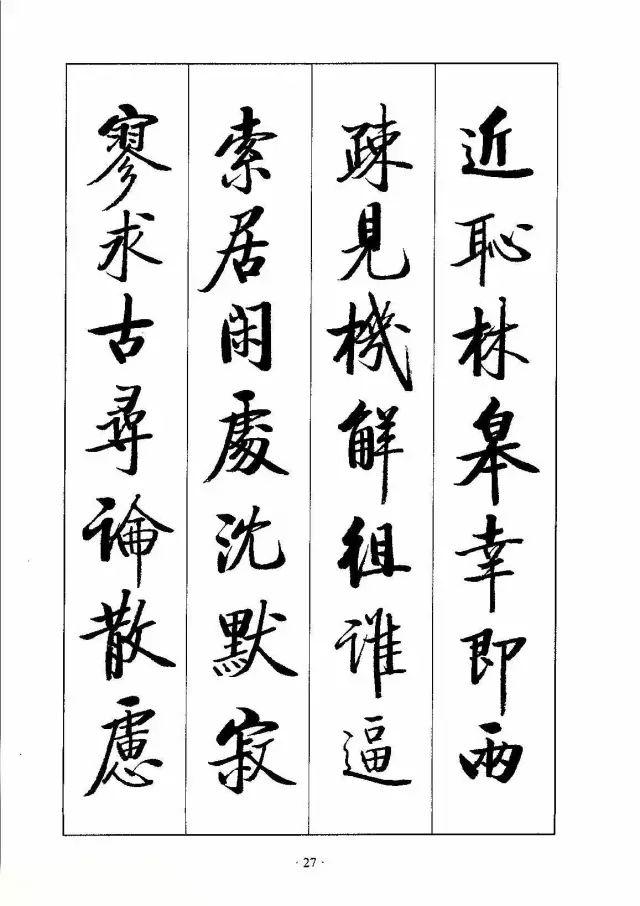 近耻林皋幸即兩
疎見機解組誰逼
索居閑處沈默寂
寥求古尋論散慮
· 27 ·